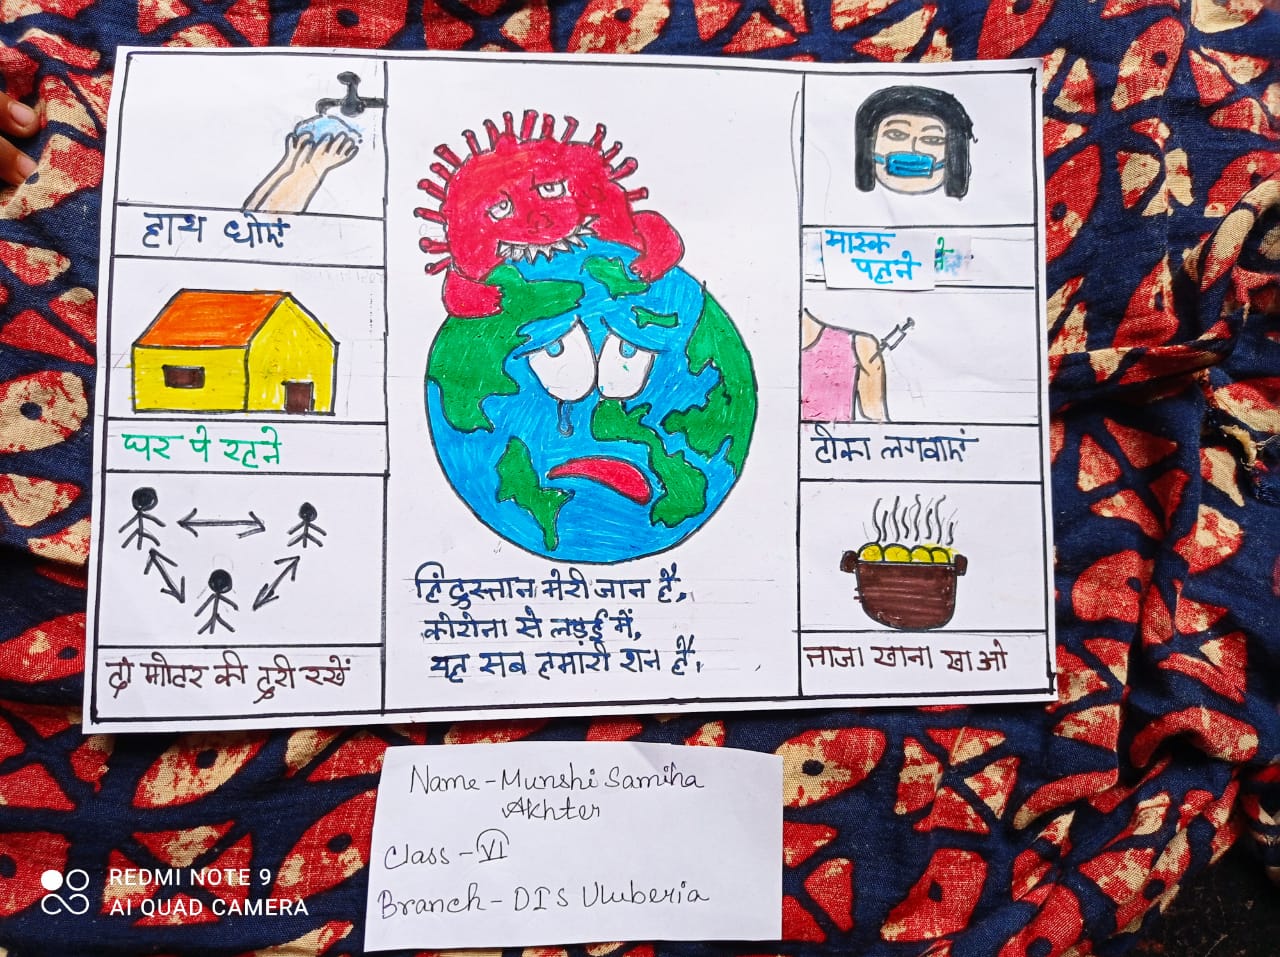 हाथ धोएं
घर पे रहने
दो मीटर की दुरी रखें
हिंदुस्तान मेरी जान है,
कोरोना से लड़ई में,
यह सब हमारी शान है,
मास्क
पहने
टीका लगवाएं
ताजा खाना खाओ
Name-Munshi Samiha
Akhter
Class-VI
Branch-DIS Uluberia
REDMI NOTE 9
AI QUAD CAMERA